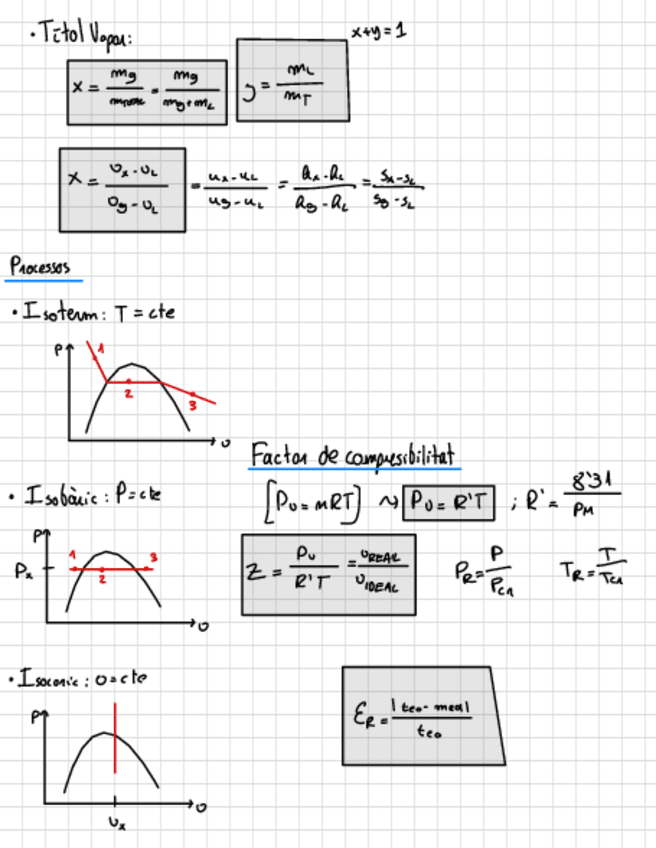 · Títol Vapor:
x+y=1
x = mg / mTOTAL = mg / mg+mL
y = mL / mT
x = υx - υL / υg - υL = ux - uL / ug - uL = hx - hL / hg - hL = sx - sL / sg - sL
Processos
· Isoterm: T = cte
P
1
2
3
υ
Factor de compresibilitat
· Isobàric: P = cte
[Pυ = nRT] ~> Pυ = R'T ; R' = 8'31 / PM
P
Px
1
2
3
υ
Z = Pυ / R'T = υREAL / υIDEAL
PR = P / PCR
TR = T / TCR
· Isocoric: υ = cte
P
υx
υ
ƐR = |teo - real| / teo